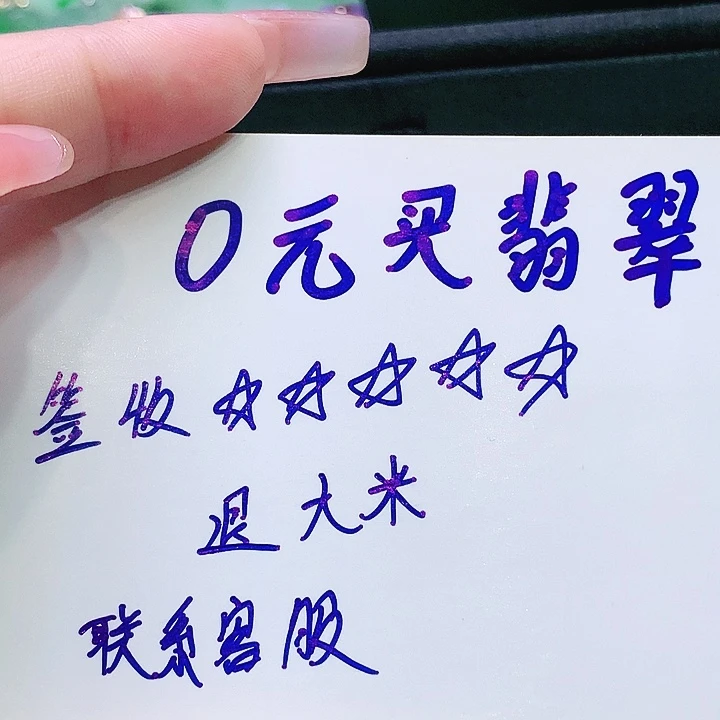 0元买翡翠
签收☆☆☆☆☆
退大米
联系客服